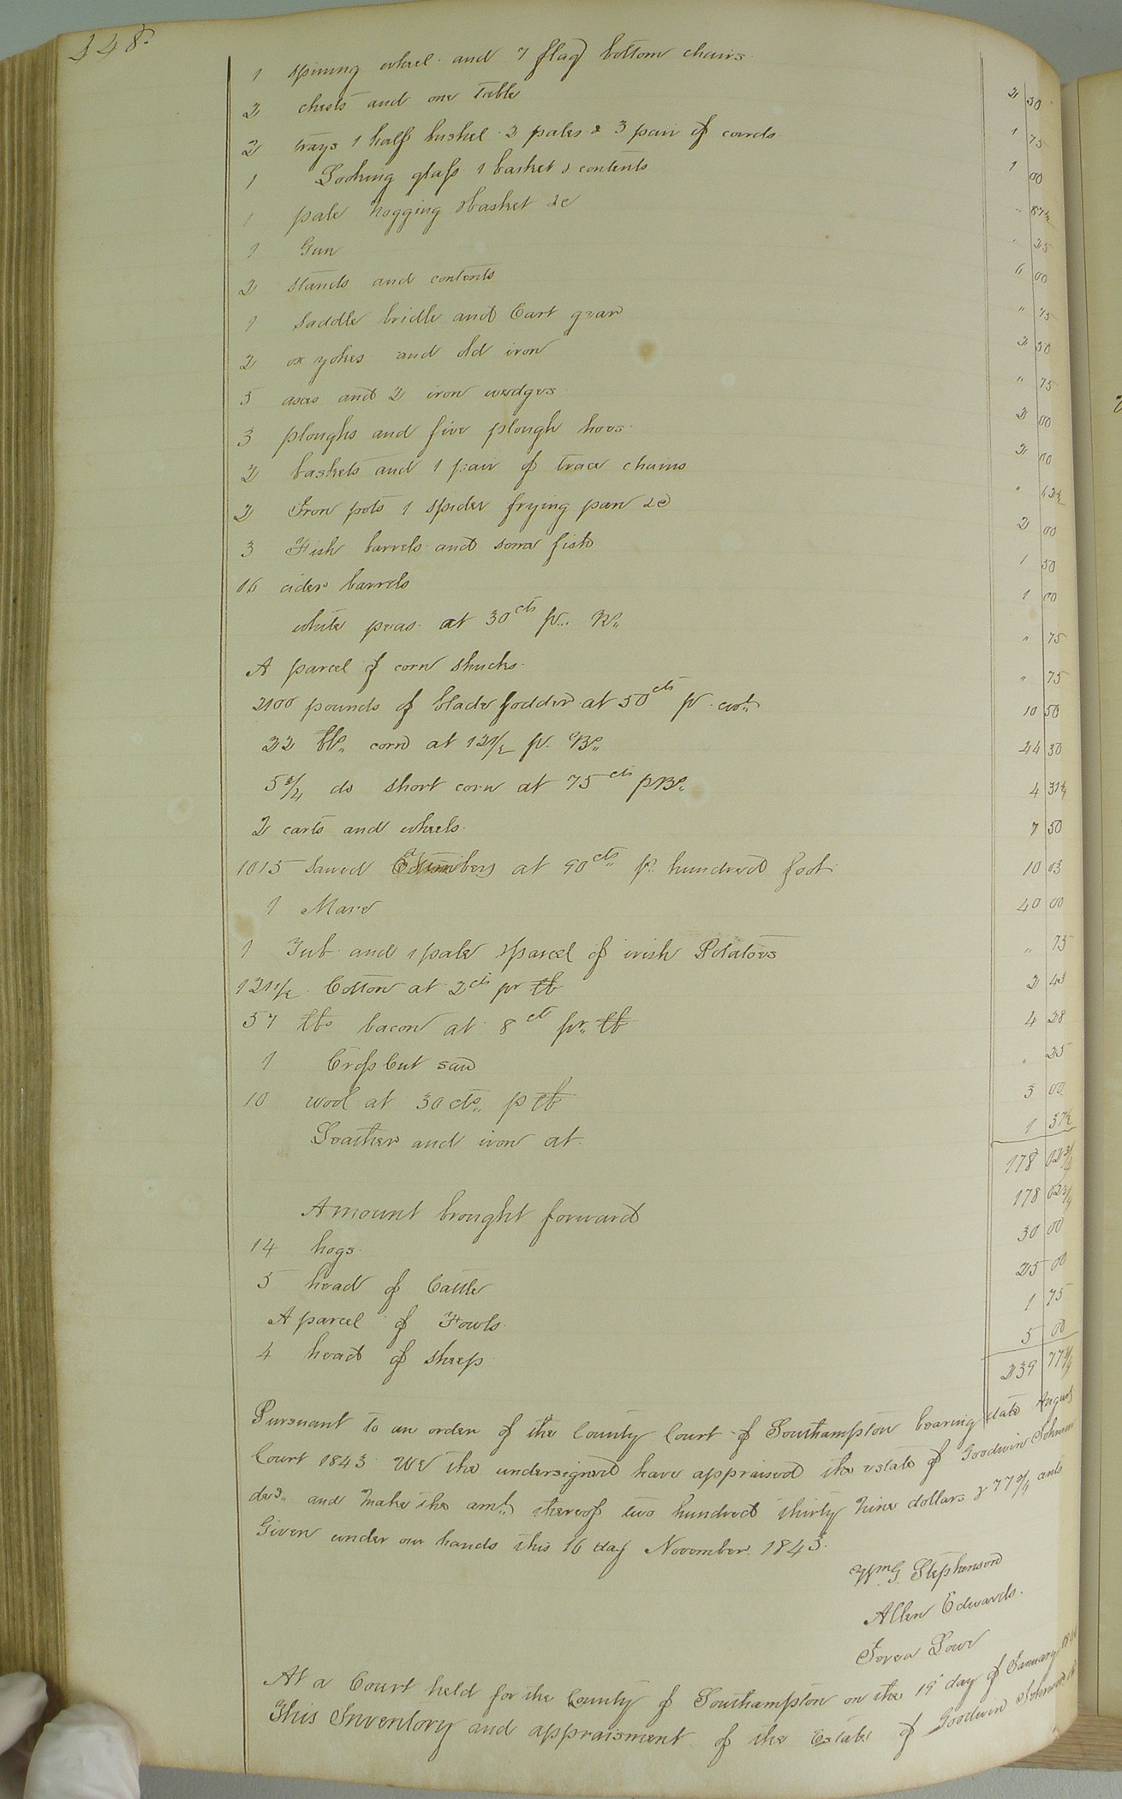 148.
1 spinning wheel and 7 flag bottom chairs 2 50
2 chests and one Table 1 75
2 trays 1 half bushel 2 pales & 3 pair of cards 1 00
1 Looking glass 1 basket & contents " 87½
1 pale nogging 1 basket &c " 25
1 Gun 6 00
2 stands and contents " 75
1 Saddle bridle and Cart gear 2 50
2 ox yokes and old iron " 75
5 axes and 2 iron wedges 2 00
3 ploughs and five plough hoes 2 00
2 baskets and 1 pair of trace chains " 62½
2 Iron pots 1 spider frying pan &c 2 00
3 Fish barrels and some fish 1 50
16 cider barrels 1 00
white peas at 30 cts pr. " 75
A parcel of corn shucks " 75
2100 pounds of blade fodder at 50 cts pr cwt 10 50
22 Bls corn at pr. Bl. 44 50
5¾ do short corn at 75 cts p Bl. 4 31¼
2 carts and wheels 7 50
1015 Sawed at 90 cts pr hundred foot 10 03
1 Mare 40 00
1 Tub and 1 pale 1 parcel of irish Potatoes " 75
121½ Cotton at 2 cts pr lb 2 43
57 lbs bacon at 8 ct pr. lb 4 28
1 Cross Cut saw " 25
10 wool at 30 cts. p lb 3 00
Leather and iron at 1 37½
178 02¾
Amount brought forward 178 02¾
14 hogs 30 00
5 head of Cattle 25 00
A parcel of Fowls 1 75
4 head of sheep 5 00
239 77¾
Pursuant to an order of the County Court of Southampton bearing date August
Court 1843 We the undersigned have appraised the estate of Goodwin Johnson
decd. and make the amt. thereof two hundred thirty Nine dollars & 77¾ cents
Given under our hands this 16 day November 1843.
Wm. G. Stephenson
Allen Edwards.
Lowe
At a Court held for the County of Southampton on the 15 day of January
This Inventory and appraisment of the Estate of Goodwin Johnson